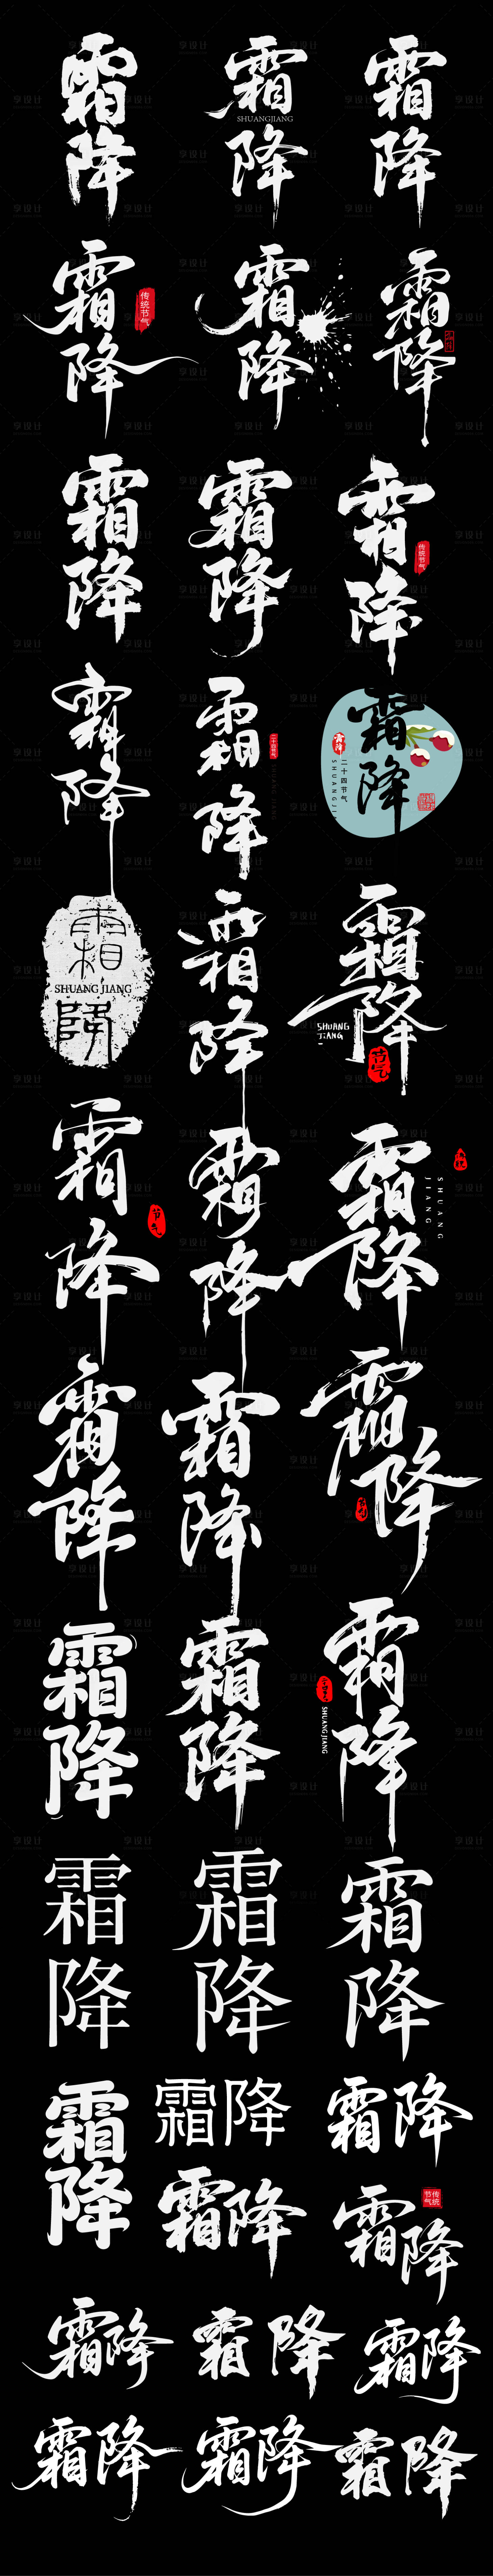 霜降
霜降
SHUANGJIANG
霜降
霜降
传统节气
霜降
霜降
霜降
霜降
霜降
传统节气
霜降
霜降
二十四节气
SHUANG JIANG
霜降
霜降
二十四节气
霜降
SHUANG JIANG
霜降
霜降
SHUANG
JIANG
节气
霜降
节气
霜降
霜降
SHUANG
JIANG
霜降
霜降
霜降
霜降
霜降
霜降
SHUANGJIANG
霜降
霜降
霜降
霜降
霜降
霜降
霜降
霜降
传统
节气
霜降
霜降
霜降
霜降
霜降
霜降
享设计